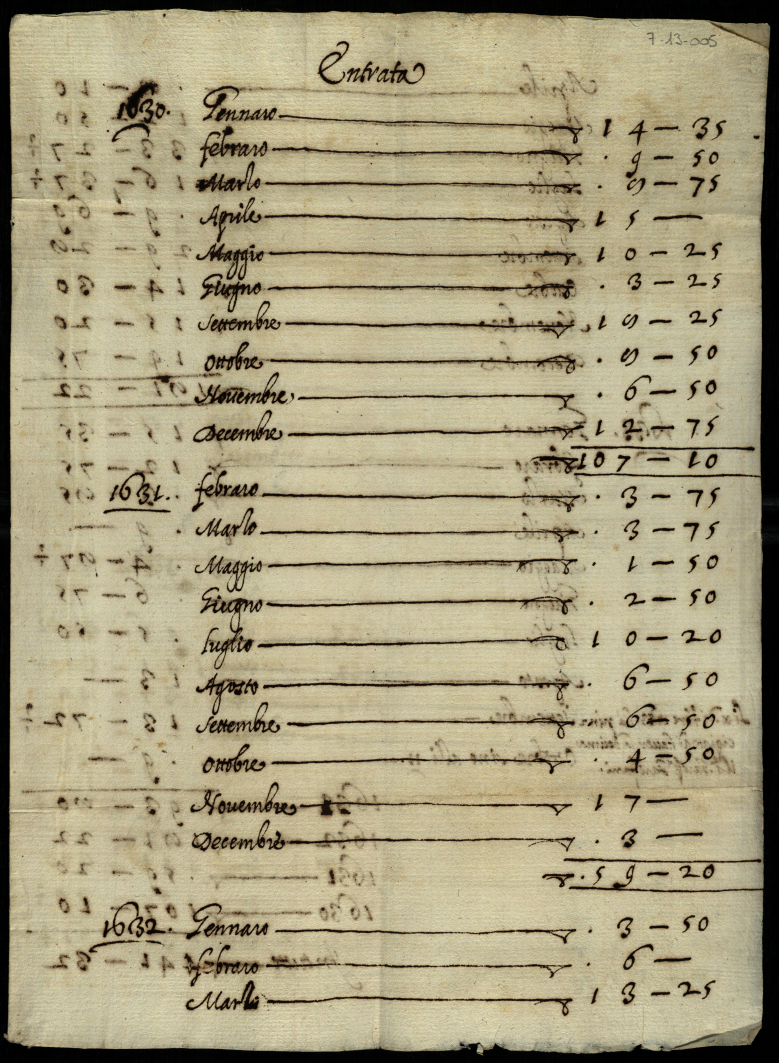 7-13-005
Entrata
1630. Gennaro 14 — 35
febraro . 9 — 50
Marzo . 9 — 75
Aprile 15 —
Maggio 10 — 25
Giugno . 3 — 25
Settembre 19 — 25
Ottobre . 9 — 50
Novembre . 6 — 50
Decembre 12 — 75
107 — 10
1631. febraro . 3 — 75
Marzo . 3 — 75
Maggio . 1 — 50
Giugno . 2 — 50
Luglio 10 — 20
Agosto . 6 — 50
Settembre . 6 — 50
Ottobre . 4 — 50
Novembre 17 —
Decembre . 3 —
. 59 — 20
1632. Gennaro . 3 — 50
febraro . 6 —
Marzo 13 — 25